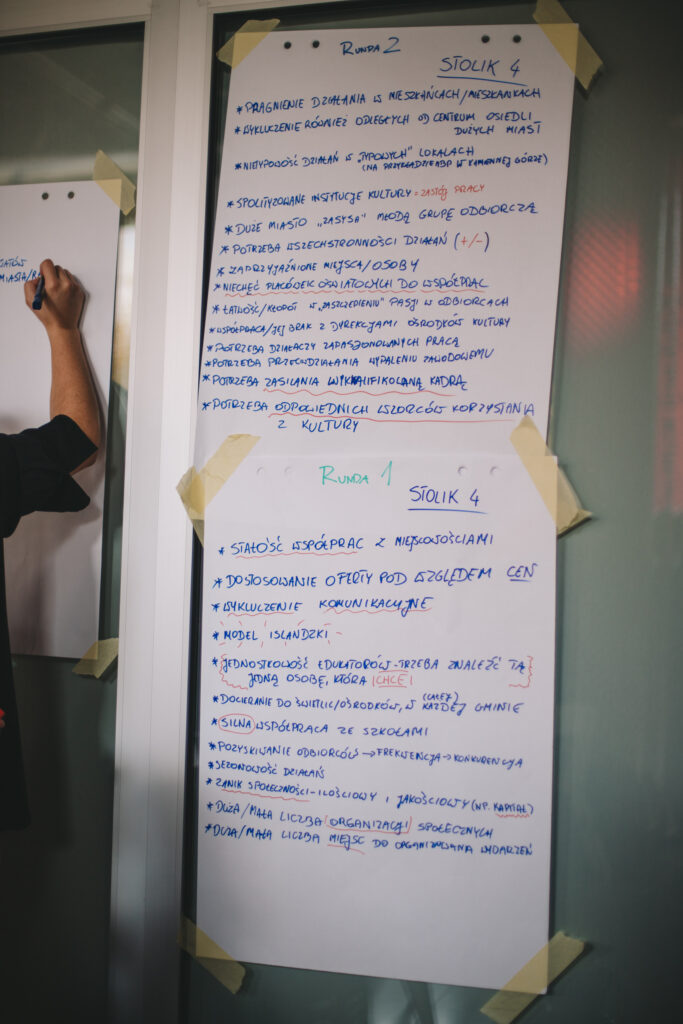 RUNDA 2
STOLIK 4
* PRAGNIENIE DZIAŁANIA W MIESZKAŃCACH/MIESZKANKACH
* WYKLUCZENIE RÓWNIEŻ ODLEGŁYCH OD CENTRUM OSIEDLI
DUŻYCH MIAST
* NIETYPOWOŚĆ DZIAŁAŃ W „TYPOWYCH" LOKALACH
(NA PRZYKŁADZIE ABP W KAMIENNEJ GÓRZE)
* SPOLITYZOWANE INSTYTUCJE KULTURY = ZASTÓJ PRACY
* DUŻE MIASTO „ZASYSA" MŁODĄ GRUPĘ ODBIORCZĄ
* POTRZEBA WSZECHSTRONNOŚCI DZIAŁAŃ (+/-)
* ZAPRZYJAŹNIONE MIEJSCA/OSOBY
* NIECHĘĆ PLACÓWEK OŚWIATOWYCH DO WSPÓŁPRAC
* ŁATWOŚĆ/KŁOPOT W „ZASZCZEPIENIU" PASJI W ODBIORCACH
* WSPÓŁPRACA/JEJ BRAK Z DYREKCJAMI OŚRODKÓW KULTURY
* POTRZEBA DZIAŁACZY ZAPASJONOWANYCH PRACĄ
* POTRZEBA PRZECIWDZIAŁANIA WYPALENIU ZAWODOWEMU
* POTRZEBA ZASILANIA WYKWALIFIKOWANĄ KADRĄ
* POTRZEBA ODPOWIEDNICH WZORCÓW KORZYSTANIA
Z KULTURY
RUNDA 1
STOLIK 4
* STAŁOŚĆ WSPÓŁPRAC Z MIEJSCOWOŚCIAMI
* DOSTOSOWANIE OFERTY POD WZGLĘDEM CEN
* WYKLUCZENIE KOMUNIKACYJNE
* MODEL ISLANDZKI
* JEDNOSTKOWOŚĆ EDUKATORÓW - TRZEBA ZNALEŹĆ TĄ
JEDNĄ OSOBĘ, KTÓRA CHCE
(CAŁEJ)
* DOCIERANIE DO ŚWIETLIC/OŚRODKÓW, W KAŻDEJ GMINIE
* SILNA WSPÓŁPRACA ZE SZKOŁAMI
* POZYSKIWANIE ODBIORCÓW → FREKWENCJA → KONKURENCJA
* SEZONOWOŚĆ DZIAŁAŃ
* ZANIK SPOŁECZNOŚCI - ILOŚCIOWY I JAKOŚCIOWY (NP. KAPITAŁ)
* DUŻA/MAŁA LICZBA ORGANIZACJI SPOŁECZNYCH
* DUŻA/MAŁA LICZBA MIEJSC DO ORGANIZOWANIA WYDARZEŃ